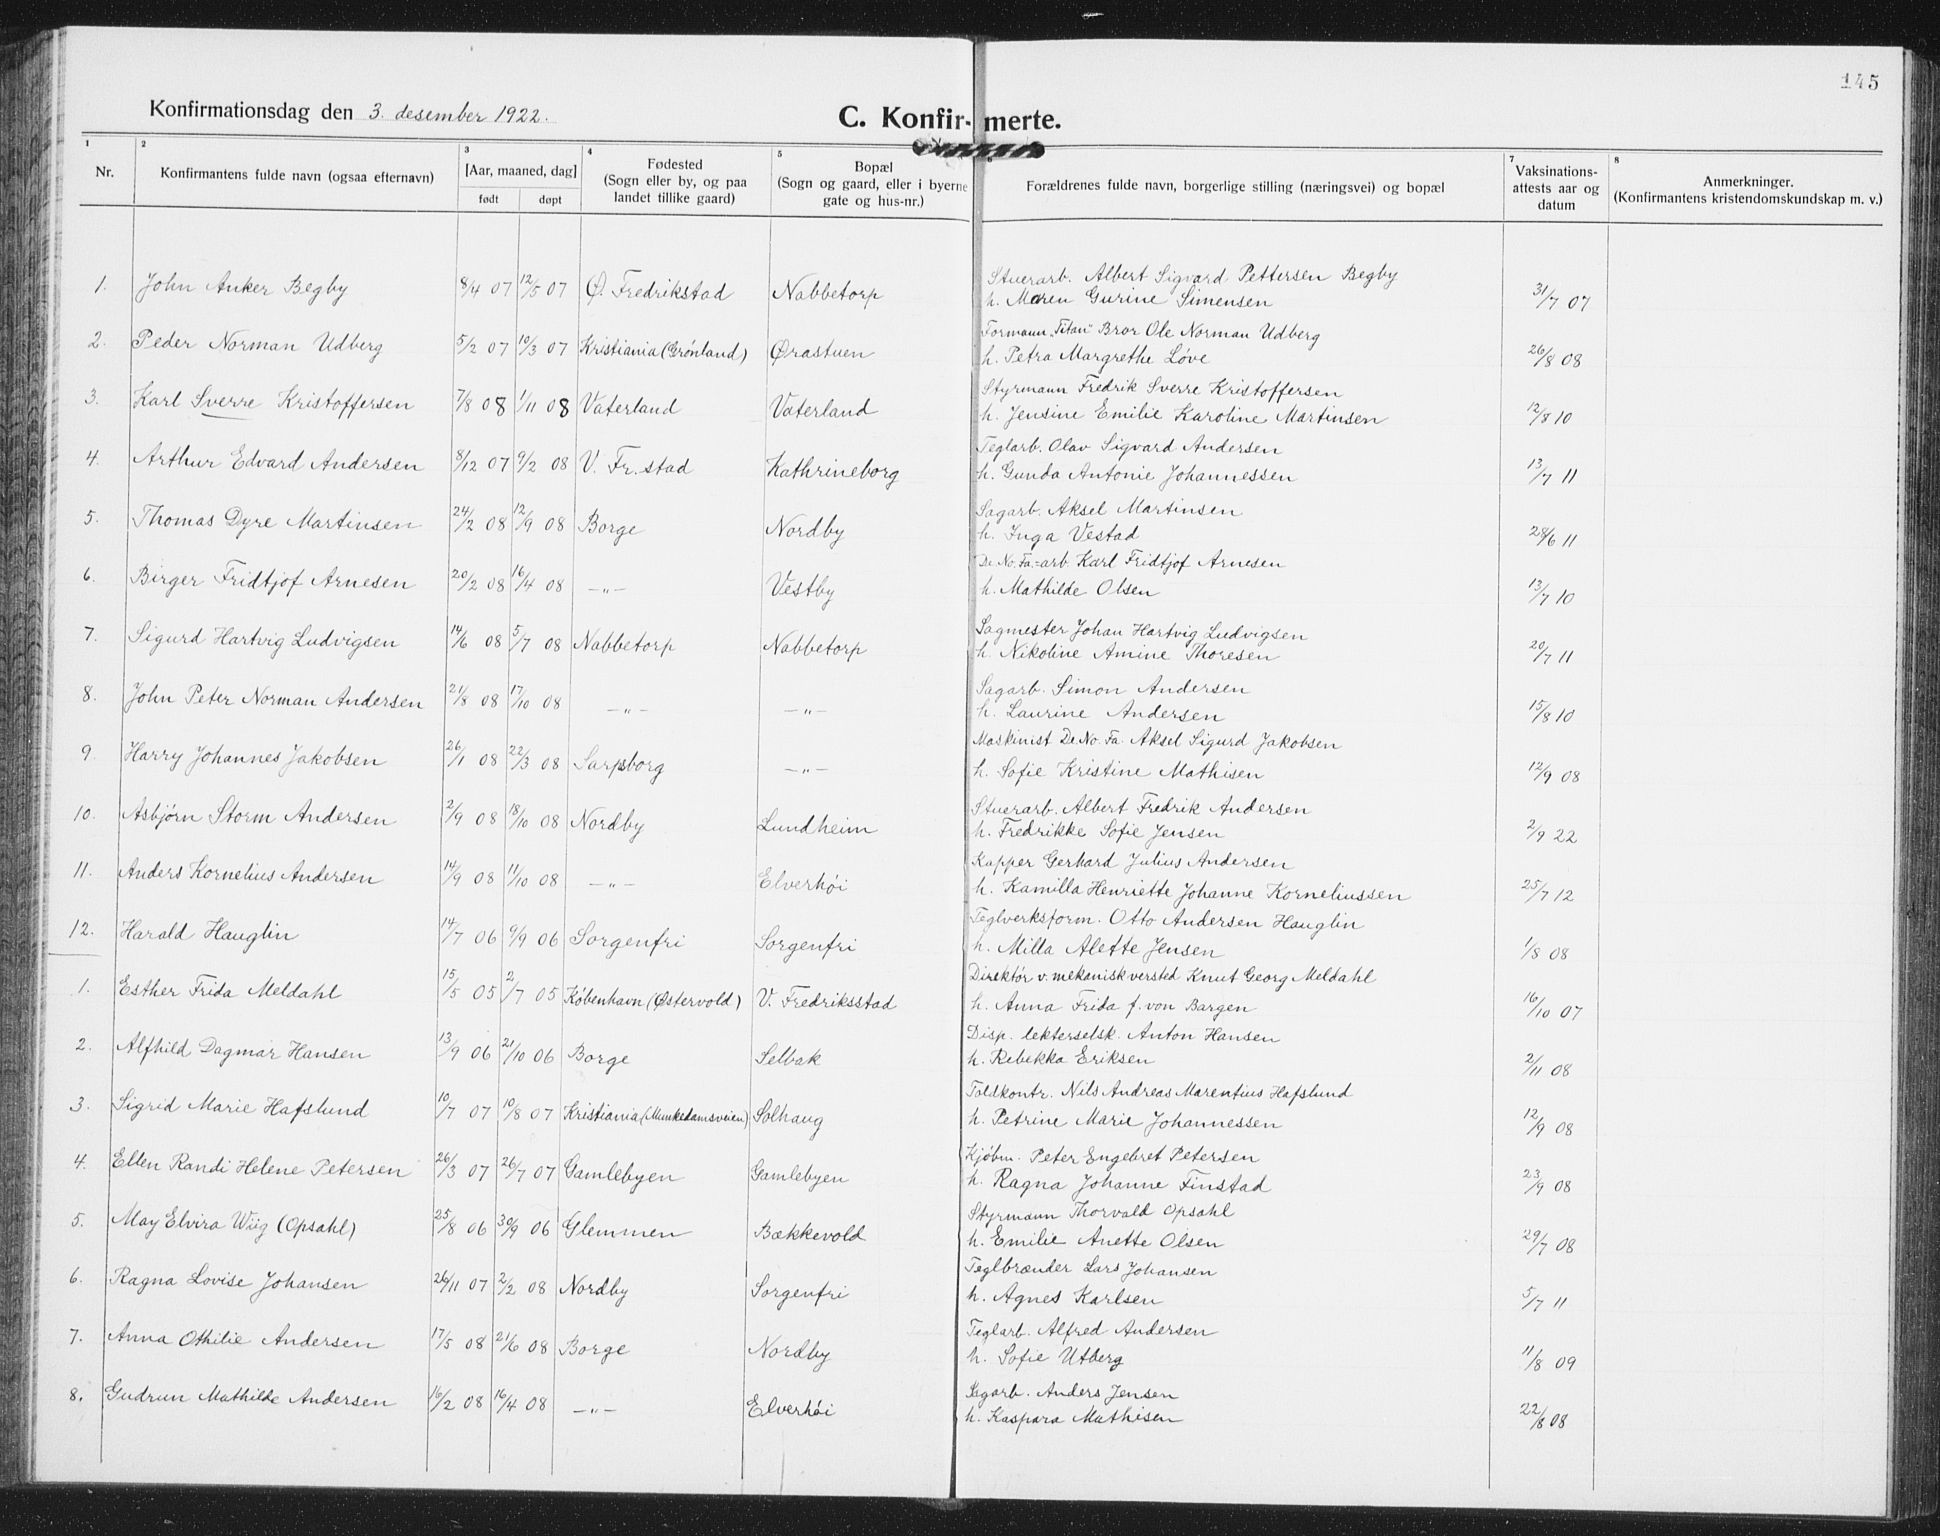 145
Konfirmationsdag den 3. desember 1922.
C. Konfir-merte.
1 2 3 4 5 7 8
Nr. Konfirmantens fulde navn (ogsaa efternavn) [Aar, maaned, dag] født døpt Fødested (Sogn eller by, og paa landet tillike gaard) Bopæl (Sogn og gaard, eller i byerne gate og hus-nr.) Forældrenes fulde navn, borgerlige stilling (næringsvei) og bopæl Vaksinations-attests aar og datum Anmerkninger. (Konfirmantens kristendomskundskap m. v.)
1. John Anker Begby 8/4 07 12/5 07 Ø. Fredrikstad Nabbetorp Stuerarb. Albert Sigvard Pettersen Begby
h. Maren Gurine Simensen 31/7 07
2. Peder Norman Udberg 5/2 07 10/3 07 Kristiania (Grønland) Ørastuen Formann „Titan" Bror Ole Norman Udberg
h. Petra Margrethe Løve 26/8 08
3. Karl Sverre Kristoffersen 7/8 08 1/11 08 Vaterland Vaterland Styrmann Fredrik Sverre Kristoffersen
h. Jensine Emilie Karoline Martinsen 12/8 10
4. Arthur Edvard Andersen 8/12 07 9/2 08 V. Fr.stad Kathrineborg Teglarb. Olav Sigvard Andersen
h. Gunda Antonie Johannessen 13/7 11
5. Thomas Dyre Martinsen 24/2 08 12/9 08 Borge Nordby Sagarb. Aksel Martinsen
h. Inga Vestad 28/6 11
6. Birger Fridtjof Arnesen 20/2 08 16/4 08 —„— Vestby De.No.Fa.-arb. Karl Fridtjof Arnesen
h. Mathilde Olsen 13/7 10
7. Sigurd Hartvig Ludvigsen 14/6 08 5/7 08 Nabbetorp Nabbetorp Sagmester Johan Hartvig Ludvigsen
h. Nikoline Amine Thoresen 20/7 11
8. John Peter Norman Andersen 21/8 08 17/10 08 —„— —„— Sagarb. Simon Andersen
h. Laurine Andersen 15/8 10
9. Harry Johannes Jakobsen 26/1 08 22/3 08 Sarpsborg —„— Maskinist De.No.Fa. Aksel Sigurd Jakobsen
h. Sofie Kristine Mathisen 12/9 08
10. Asbjørn Storm Andersen 2/9 08 18/10 08 Nordby Lundheim Stuerarb. Albert Fredrik Andersen
h. Fredrikke Sofie Jensen 2/9 22
11. Anders Kornelius Andersen 14/9 08 11/10 08 —„— Elverhøi Kapper Gerhard Julius Andersen
h. Kamilla Henriette Johanne Korneliussen 25/7 12
12. Harald Hauglin 14/7 06 9/9 06 Sorgenfri Sorgenfri Teglverksform. Otto Andersen Hauglin
h. Milla Alette Jensen 1/8 08
1. Esther Frida Meldahl 15/5 05 2/7 05 København (Østervold) V. Fredriksstad Direktør v. mekanisk versted Knut Georg Meldahl
h. Anna Frida f. von Bargen 16/10 07
2. Alfhild Dagmar Hansen 13/9 06 21/10 06 Borge Selbak Disp. lekterselsk. Anton Hansen
h. Rebekka Eriksen 2/11 08
3. Sigrid Marie Hafslund 10/7 07 10/8 07 Kristiania (Munkedamsveien) Solhaug Toldkontr. Nils Andreas Marentius Hafslund
h. Petrine Marie Johannessen 12/9 08
4. Ellen Randi Helene Petersen 26/3 07 26/7 07 Gamlebyen Gamlebyen Kjøbm. Peter Engebret Petersen
h. Ragna Johanne Finstad 23/9 08
5. May Elvira Wiig (Opsahl) 25/8 06 30/9 06 Glemmen Bækkevold Styrmann Thorvald Opsahl
h. Emilie Anette Olsen 29/7 08
6. Ragna Lovise Johansen 26/11 07 2/2 08 Nordby Sorgenfri Teglbrænder Lars Johansen
h. Agnes Karlsen 5/7 11
7. Anna Othilie Andersen 17/5 08 21/6 08 Borge Nordby Teglarb. Alfred Andersen
h. Sofie Utberg 11/8 09
8. Gudrun Mathilde Andersen 16/2 08 16/4 08 —„— Elverhøi Sagarb. Anders Jensen
h. Kaspara Mathisen 22/8 08